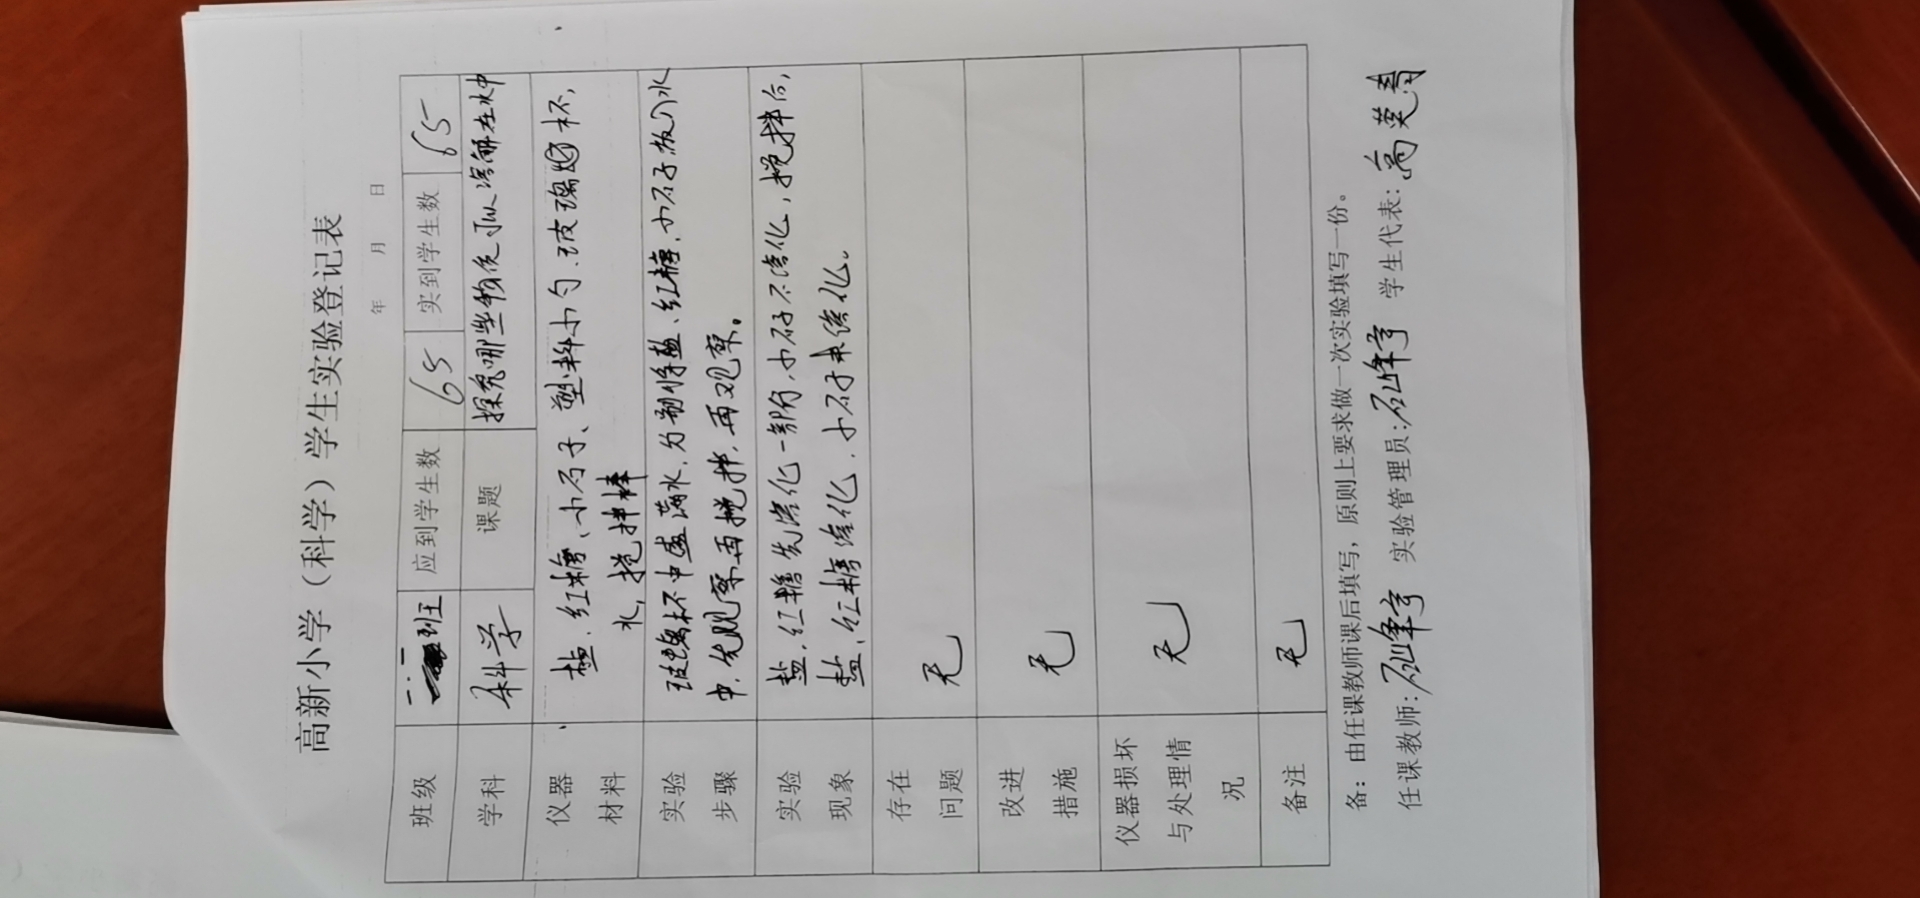 高新小学（科学）学生实验登记表
年 月 日
班级 二.一班 应到学生数 65 实到学生数 65
学科 科学 课题 探究哪些物质可以溶解在水中
仪器材料 盐、红糖、小石子、塑料小勺、玻璃杯,
水,搅拌棒
实验步骤 玻璃杯中盛满水,分别将盐、红糖、小石子放入水
中,先观察再搅拌,再观察。
实验现象 盐,红糖先溶化一部分,小石子不溶化,搅拌后,
盐,红糖溶化,小石子未溶化。
存在问题 无
改进措施 无
仪器损坏与处理情况 无
备注 无
备：由任课教师课后填写，原则上要求做一次实验填写一份。
任课教师:石峰亨 实验管理员:石峰亨 学生代表:高